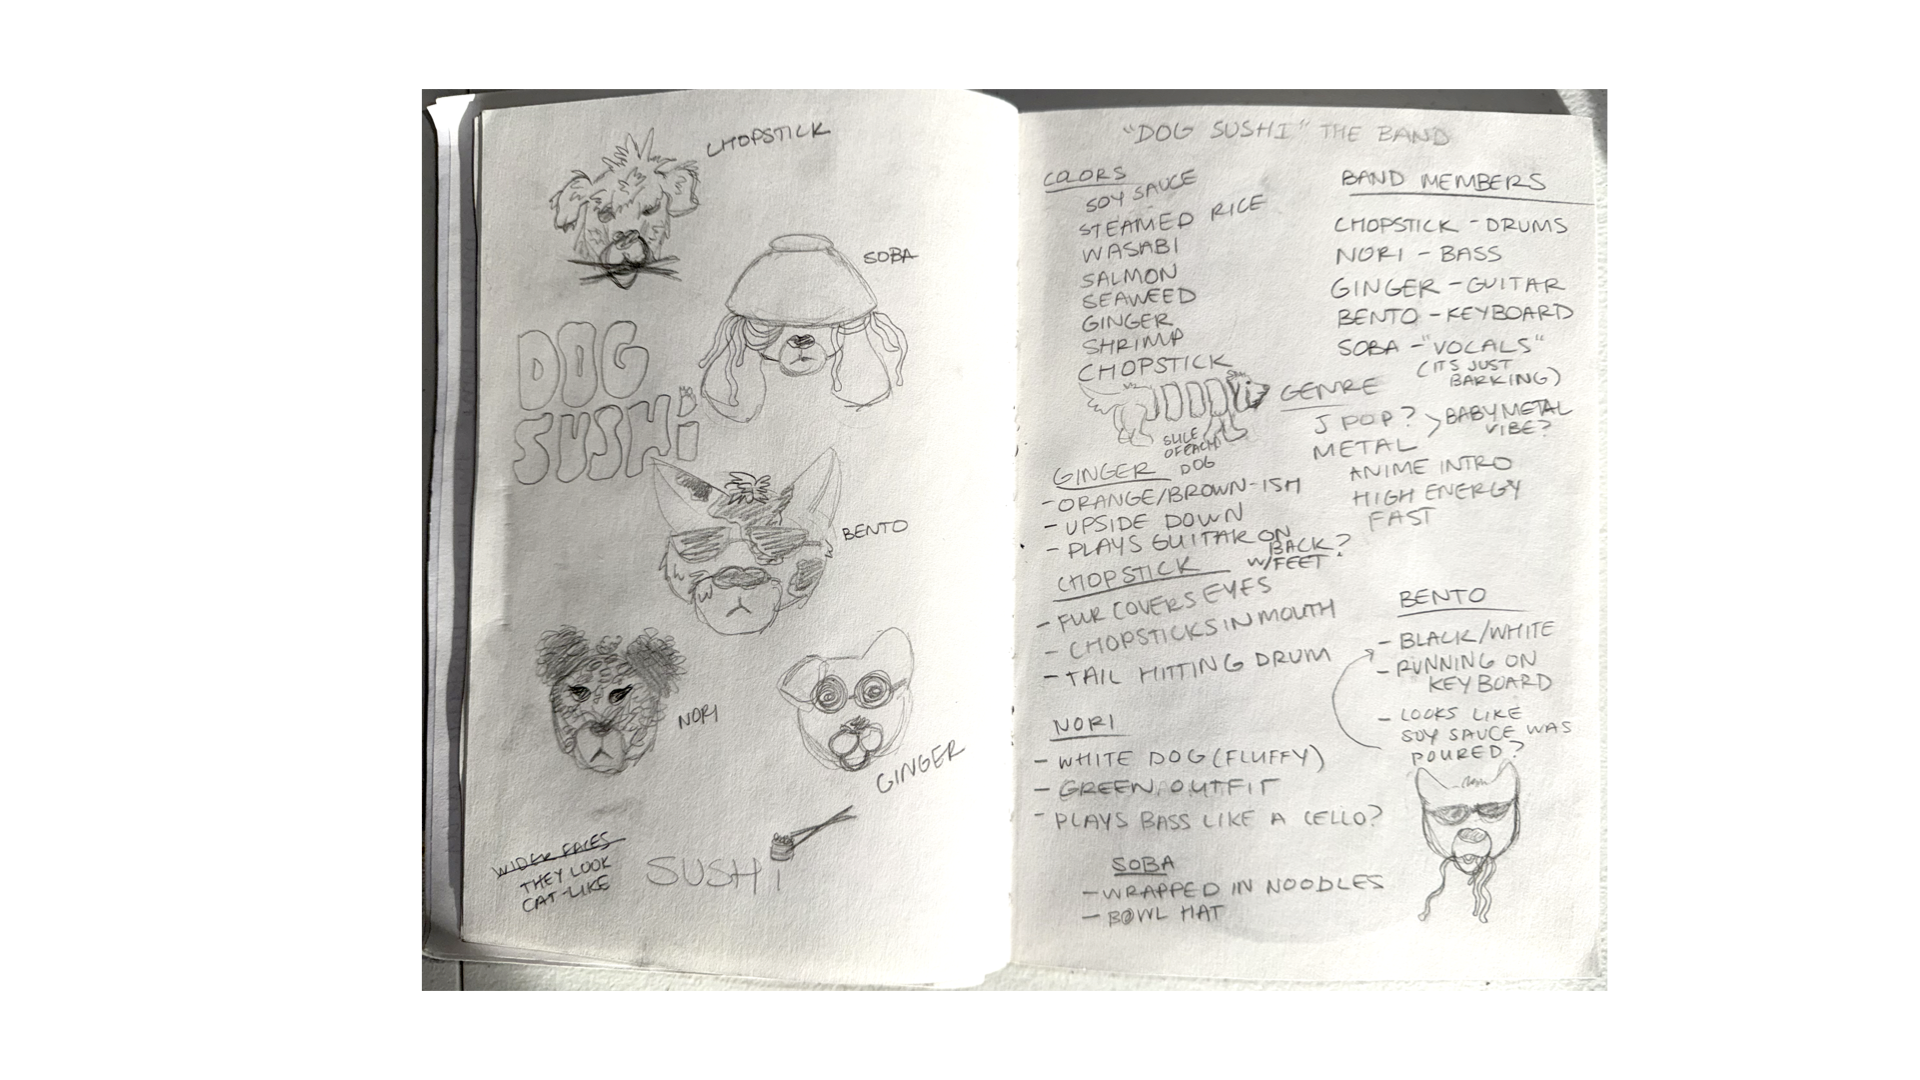 CHOPSTICK
SOBA
DOG
SUSHi
BENTO
NORI
GINGER
WIDER FACES
THEY LOOK
CAT-LIKE
SUSHi
"DOG SUSHI" THE BAND
COLORS
SOY SAUCE
STEAMED RICE
WASABI
SALMON
SEAWEED
GINGER
SHRIMP
CHOPSTICK
SLICE
OF EACH
DOG
BAND MEMBERS
CHOPSTICK - DRUMS
NORI - BASS
GINGER - GUITAR
BENTO - KEYBOARD
SOBA - "VOCALS"
(ITS JUST
BARKING)
GENRE
J POP? > BABYMETAL
VIBE?
METAL
ANIME INTRO
HIGH ENERGY
FAST
GINGER
- ORANGE/BROWN-ISH
- UPSIDE DOWN
- PLAYS GUITAR ON
BACK?
W/FEET
CHOPSTICK
- FUR COVERS EYES
- CHOPSTICKS IN MOUTH
- TAIL HITTING DRUM
NORI
- WHITE DOG (FLUFFY)
- GREEN OUTFIT
- PLAYS BASS LIKE A CELLO?
SOBA
- WRAPPED IN NOODLES
- BOWL HAT
BENTO
- BLACK/WHITE
- RUNNING ON
KEYBOARD
- LOOKS LIKE
SOY SAUCE WAS
POURED?